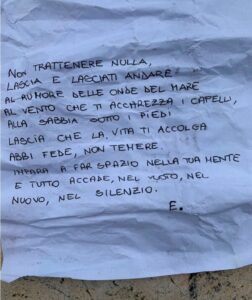 NON TRATTENERE NULLA,
LASCIA E LASCIATI ANDARE!
AL RUMORE DELLE ONDE DEL MARE
AL VENTO CHE TI ACCAREZZA I CAPELLI,
ALLA SABBIA SOTTO I PIEDI
LASCIA CHE LA VITA TI ACCOLGA
ABBI FEDE, NON TEMERE.
IMPARA A FAR SPAZIO NELLA TUA MENTE
E TUTTO ACCADE, NEL VUOTO, NEL
NUOVO, NEL SILENZIO.
E.